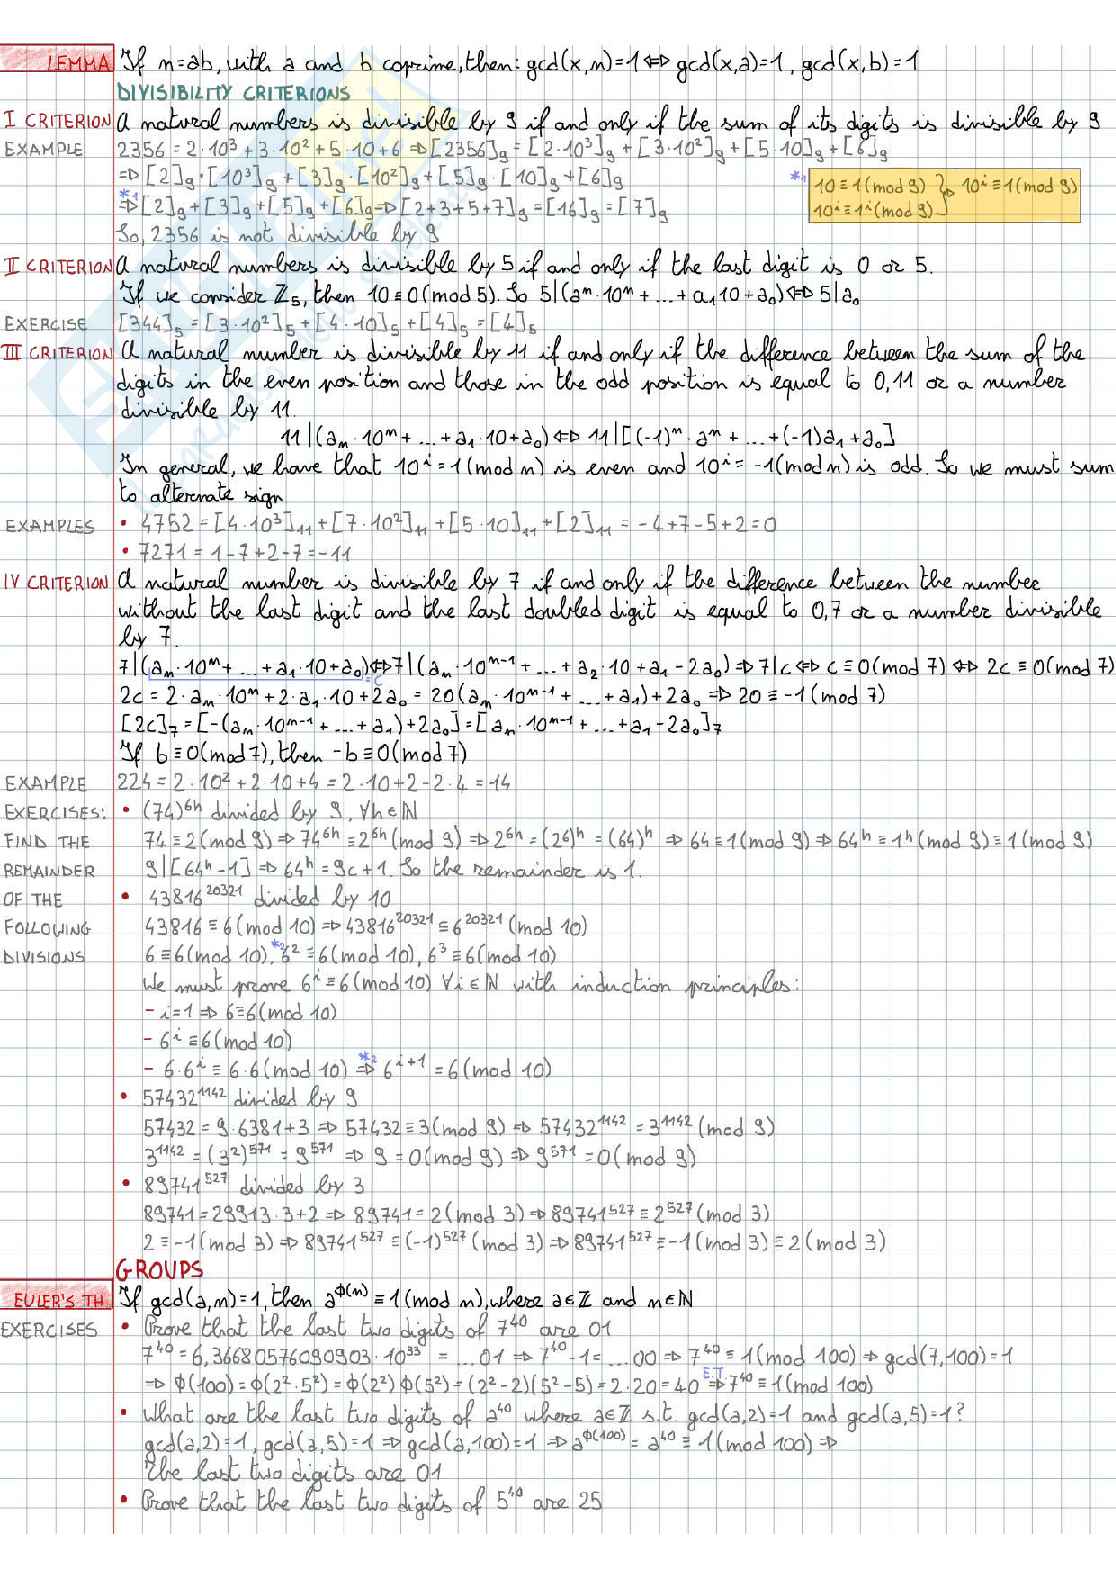 LEMMA If n=ab, with a and b coprime, then: gcd(x,n)=1 ⇔ gcd(x,a)=1, gcd(x,b)=1
DIVISIBILITY CRITERIONS
I CRITERION A natural numbers is divisible by 9 if and only if the sum of its digits is divisible by 9
EXAMPLE 2356 = 2·10³+3·10²+5·10+6 ⇒ [2356]₉ = [2·10³]₉ + [3·10²]₉ + [5·10]₉ + [6]₉
⇒ [2]₉·[10³]₉ + [3]₉·[10²]₉ + [5]₉·[10]₉ + [6]₉
*₁ 10 ≡ 1 (mod 9) } ⇒ 10ⁱ ≡ 1 (mod 9)
10ⁱ ≡ 1ⁱ (mod 9)
*₁⇒ [2]₉+[3]₉+[5]₉+[6]₉ ⇒ [2+3+5+7]₉ = [16]₉ = [7]₉
So, 2356 is not divisible by 9
II CRITERION A natural numbers is divisible by 5 if and only if the last digit is 0 or 5.
If we consider ℤ₅, then 10 ≡ 0 (mod 5). So 5|(aₙ·10ⁿ + ... + a₁10 + a₀) ⇔ 5|a₀
EXERCISE [344]₅ = [3·10²]₅ + [4·10]₅ + [4]₅ = [4]₅
III CRITERION A natural number is divisible by 11 if and only if the difference between the sum of the
digits in the even position and those in the odd position is equal to 0, 11 or a number
divisible by 11.
11|(aₙ·10ⁿ + ... + a₁·10 + a₀) ⇔ 11|[(-1)ⁿ·aₙ + ... + (-1)a₁ + a₀]
In general, we have that 10ⁱ = 1 (mod n) is even and 10ⁱ = -1 (mod n) is odd. So we must sum
to alternate sign
EXAMPLES • 4752 = [4·10³]₁₁ + [7·10²]₁₁ + [5·10]₁₁ + [2]₁₁ = -4+7-5+2 = 0
• 7271 = 1-7+2-7 = -11
IV CRITERION A natural number is divisible by 7 if and only if the difference between the number
without the last digit and the last doubled digit is equal to 0, 7 or a number divisible
by 7.
7|(aₙ·10ⁿ + ... + a₁·10 + a₀) ⇔ 7|(aₙ·10ⁿ⁻¹ + ... + a₂·10 + a₁ - 2a₀) ⇒ 7|c ⇔ c ≡ 0 (mod 7) ⇔ 2c ≡ 0 (mod 7)
= c
2c = 2·aₙ·10ⁿ + 2·a₁·10 + 2a₀ = 20(aₙ·10ⁿ⁻¹ + ... + a₁) + 2a₀ ⇒ 20 ≡ -1 (mod 7)
[2c]₇ = [-(aₙ·10ⁿ⁻¹ + ... + a₁) + 2a₀] = [aₙ·10ⁿ⁻¹ + ... + a₁ - 2a₀]₇
If b ≡ 0 (mod 7), then -b ≡ 0 (mod 7)
EXAMPLE 224 = 2·10² + 2·10 + 4 = 2·10 + 2 - 2·4 = -14
EXERCISES: • (74)⁶ʰ divided by 9, ∀h∈ℕ
FIND THE 74 ≡ 2 (mod 9) ⇒ 74⁶ʰ ≡ 2⁶ʰ (mod 9) ⇒ 2⁶ʰ = (2⁶)ʰ = (64)ʰ ⇒ 64 ≡ 1 (mod 9) ⇒ 64ʰ ≡ 1ʰ (mod 9) ≡ 1 (mod 9)
REMAINDER 9|[64ʰ-1] ⇒ 64ʰ = 9c+1. So the remainder is 1.
OF THE • 43816²⁰³²¹ divided by 10
FOLLOWING 43816 ≡ 6 (mod 10) ⇒ 43816²⁰³²¹ ≡ 6²⁰³²¹ (mod 10)
DIVISIONS 6 ≡ 6 (mod 10), *₂ 6² ≡ 6 (mod 10), 6³ ≡ 6 (mod 10)
We must prove 6ⁱ ≡ 6 (mod 10) ∀i∈ℕ with induction principles:
- i=1 ⇒ 6 ≡ 6 (mod 10)
- 6ⁱ ≡ 6 (mod 10)
- 6·6ⁱ ≡ 6·6 (mod 10) *₂⇒ 6ⁱ⁺¹ = 6 (mod 10)
• 57432¹¹⁴² divided by 9
57432 = 9·6381+3 ⇒ 57432 ≡ 3 (mod 9) ⇒ 57432¹¹⁴² = 3¹¹⁴² (mod 9)
3¹¹⁴² = (3²)⁵⁷¹ = 9⁵⁷¹ ⇒ 9 = 0 (mod 9) ⇒ 9⁵⁷¹ = 0 (mod 9)
• 89741⁵²⁷ divided by 3
89741 = 29913·3+2 ⇒ 89741 = 2 (mod 3) ⇒ 89741⁵²⁷ ≡ 2⁵²⁷ (mod 3)
2 ≡ -1 (mod 3) ⇒ 89741⁵²⁷ ≡ (-1)⁵²⁷ (mod 3) ⇒ 89741⁵²⁷ ≡ -1 (mod 3) ≡ 2 (mod 3)
GROUPS
EULER'S TH If gcd(a,n)=1, then a^ϕ(n) ≡ 1 (mod n), where a∈ℤ and n∈ℕ
EXERCISES • Prove that the last two digits of 7⁴⁰ are 01
7⁴⁰ = 6,36680576090903·10³³ = ...01 ⇒ 7⁴⁰-1 = ...00 ⇒ 7⁴⁰ ≡ 1 (mod 100) ⇒ gcd(7,100)=1
⇒ ϕ(100) = ϕ(2²·5²) = ϕ(2²)ϕ(5²) = (2²-2)(5²-5) = 2·20 = 40 E.T.⇒ 7⁴⁰ ≡ 1 (mod 100)
• What are the last two digits of a⁴⁰ where a∈ℤ s.t. gcd(a,2)=1 and gcd(a,5)=1?
gcd(a,2)=1, gcd(a,5)=1 ⇒ gcd(a,100)=1 ⇒ a^ϕ(100) = a⁴⁰ ≡ 1 (mod 100) ⇒
The last two digits are 01
• Prove that the last two digits of 5⁴⁰ are 25